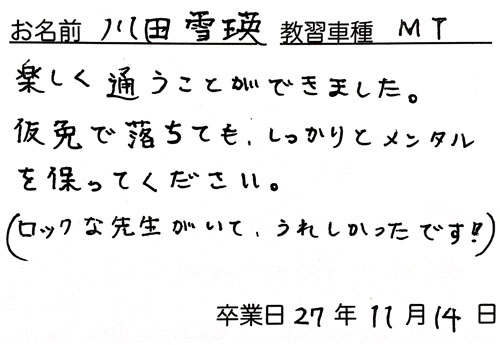 お名前 川田雪瑛 教習車種 MT
楽しく通うことができました。
仮免で落ちても、しっかりとメンタル
を保ってください。
(ロックな先生がいて、うれしかったです!!)
卒業日27年11月14日